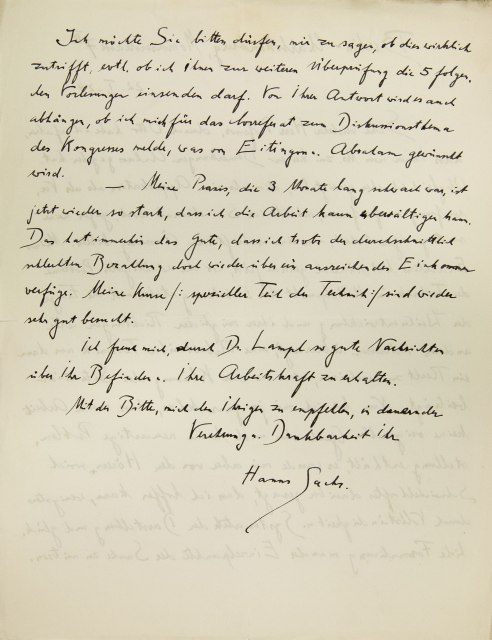 Ich möchte Sie bitten dürfen, mir zu sagen, ob dies wirklich
zutrifft, evtl. ob ich Ihnen zur weiteren Überprüfung die 5 folgen-
den Vorlesungen einsenden darf. Von Ihrer Antwort wird es auch
abhängen, ob ich mich für das Correferat zum Diskussionsthema
des Kongresses melde, was von Eitingon u. Abraham gewünscht
wird.
— Meine Praxis, die 3 Monate lang schwach war, ist
jetzt wieder so stark, dass ich die Arbeit kaum bewältigen kann.
Das hat immerhin das Gute, dass ich trotz der durchschnittlich
schlechten Bezahlung doch wieder über ein ausreichendes Einkommen
verfüge. Meine Kurse /: spezieller Teil der Technik :/ sind wieder
sehr gut besucht.
Ich freue mich, durch Dr. Lampl so gute Nachrichten
über Ihr Befinden u. Ihre Arbeitskraft zu erhalten.
Mit der Bitte, mich den Ihrigen zu empfehlen, in dauernder
Verehrung u. Dankbarkeit Ihr
Hanns Sachs.